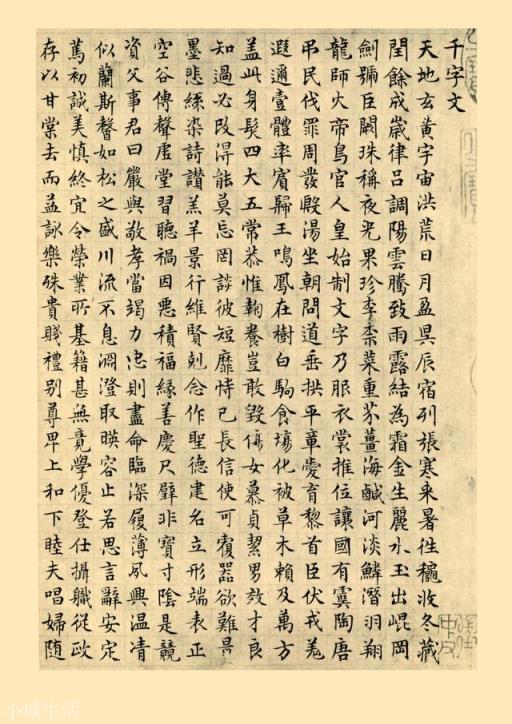 千字文
天地玄黄宇宙洪荒日月盈昃辰宿列張寒来暑往穐收冬藏
閏餘成嵗律吕調陽雲騰致雨露結為霜金生麗水玉出崐岡
劍號巨闕珠稱夜光果珍李柰菜重芥薑海鹹河淡鱗潛羽翔
龍師火帝鳥官人皇始制文字乃服衣裳推位讓國有虞陶唐
弔民伐罪周發殷湯坐朝問道垂拱平章愛育黎首臣伏戎羌
遐邇壹體率賓歸王鳴鳳在樹白駒食場化被草木賴及萬方
盖此身髮四大五常恭惟鞠養豈敢毀傷女慕貞潔男效才良
知過必改得能莫忘罔談彼短靡恃己長信使可覆器欲難量
墨悲絲染詩讃羔羊景行維賢剋念作聖德建名立形端表正
空谷傳聲虚堂習聽禍因惡積福緣善慶尺璧非寶寸陰是競
資父事君曰嚴與敬孝當竭力忠則盡命臨深履薄夙興温凊
似蘭斯馨如松之盛川流不息淵澄取暎容止若思言辭安定
篤初誠美慎終宜令榮業所基籍甚無竟學優登仕攝職從政
存以甘棠去而益詠樂殊貴賤禮别尊卑上和下睦夫唱婦随
小城生活